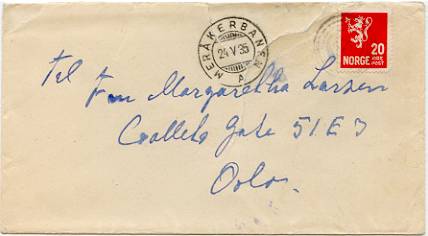 MERÅKERBANEN
24 V 35
A
20
NORGE ØRE
POST
Til
Fru Margarethe Larsen
Coalletts Gate 51 E 3
Oslo.